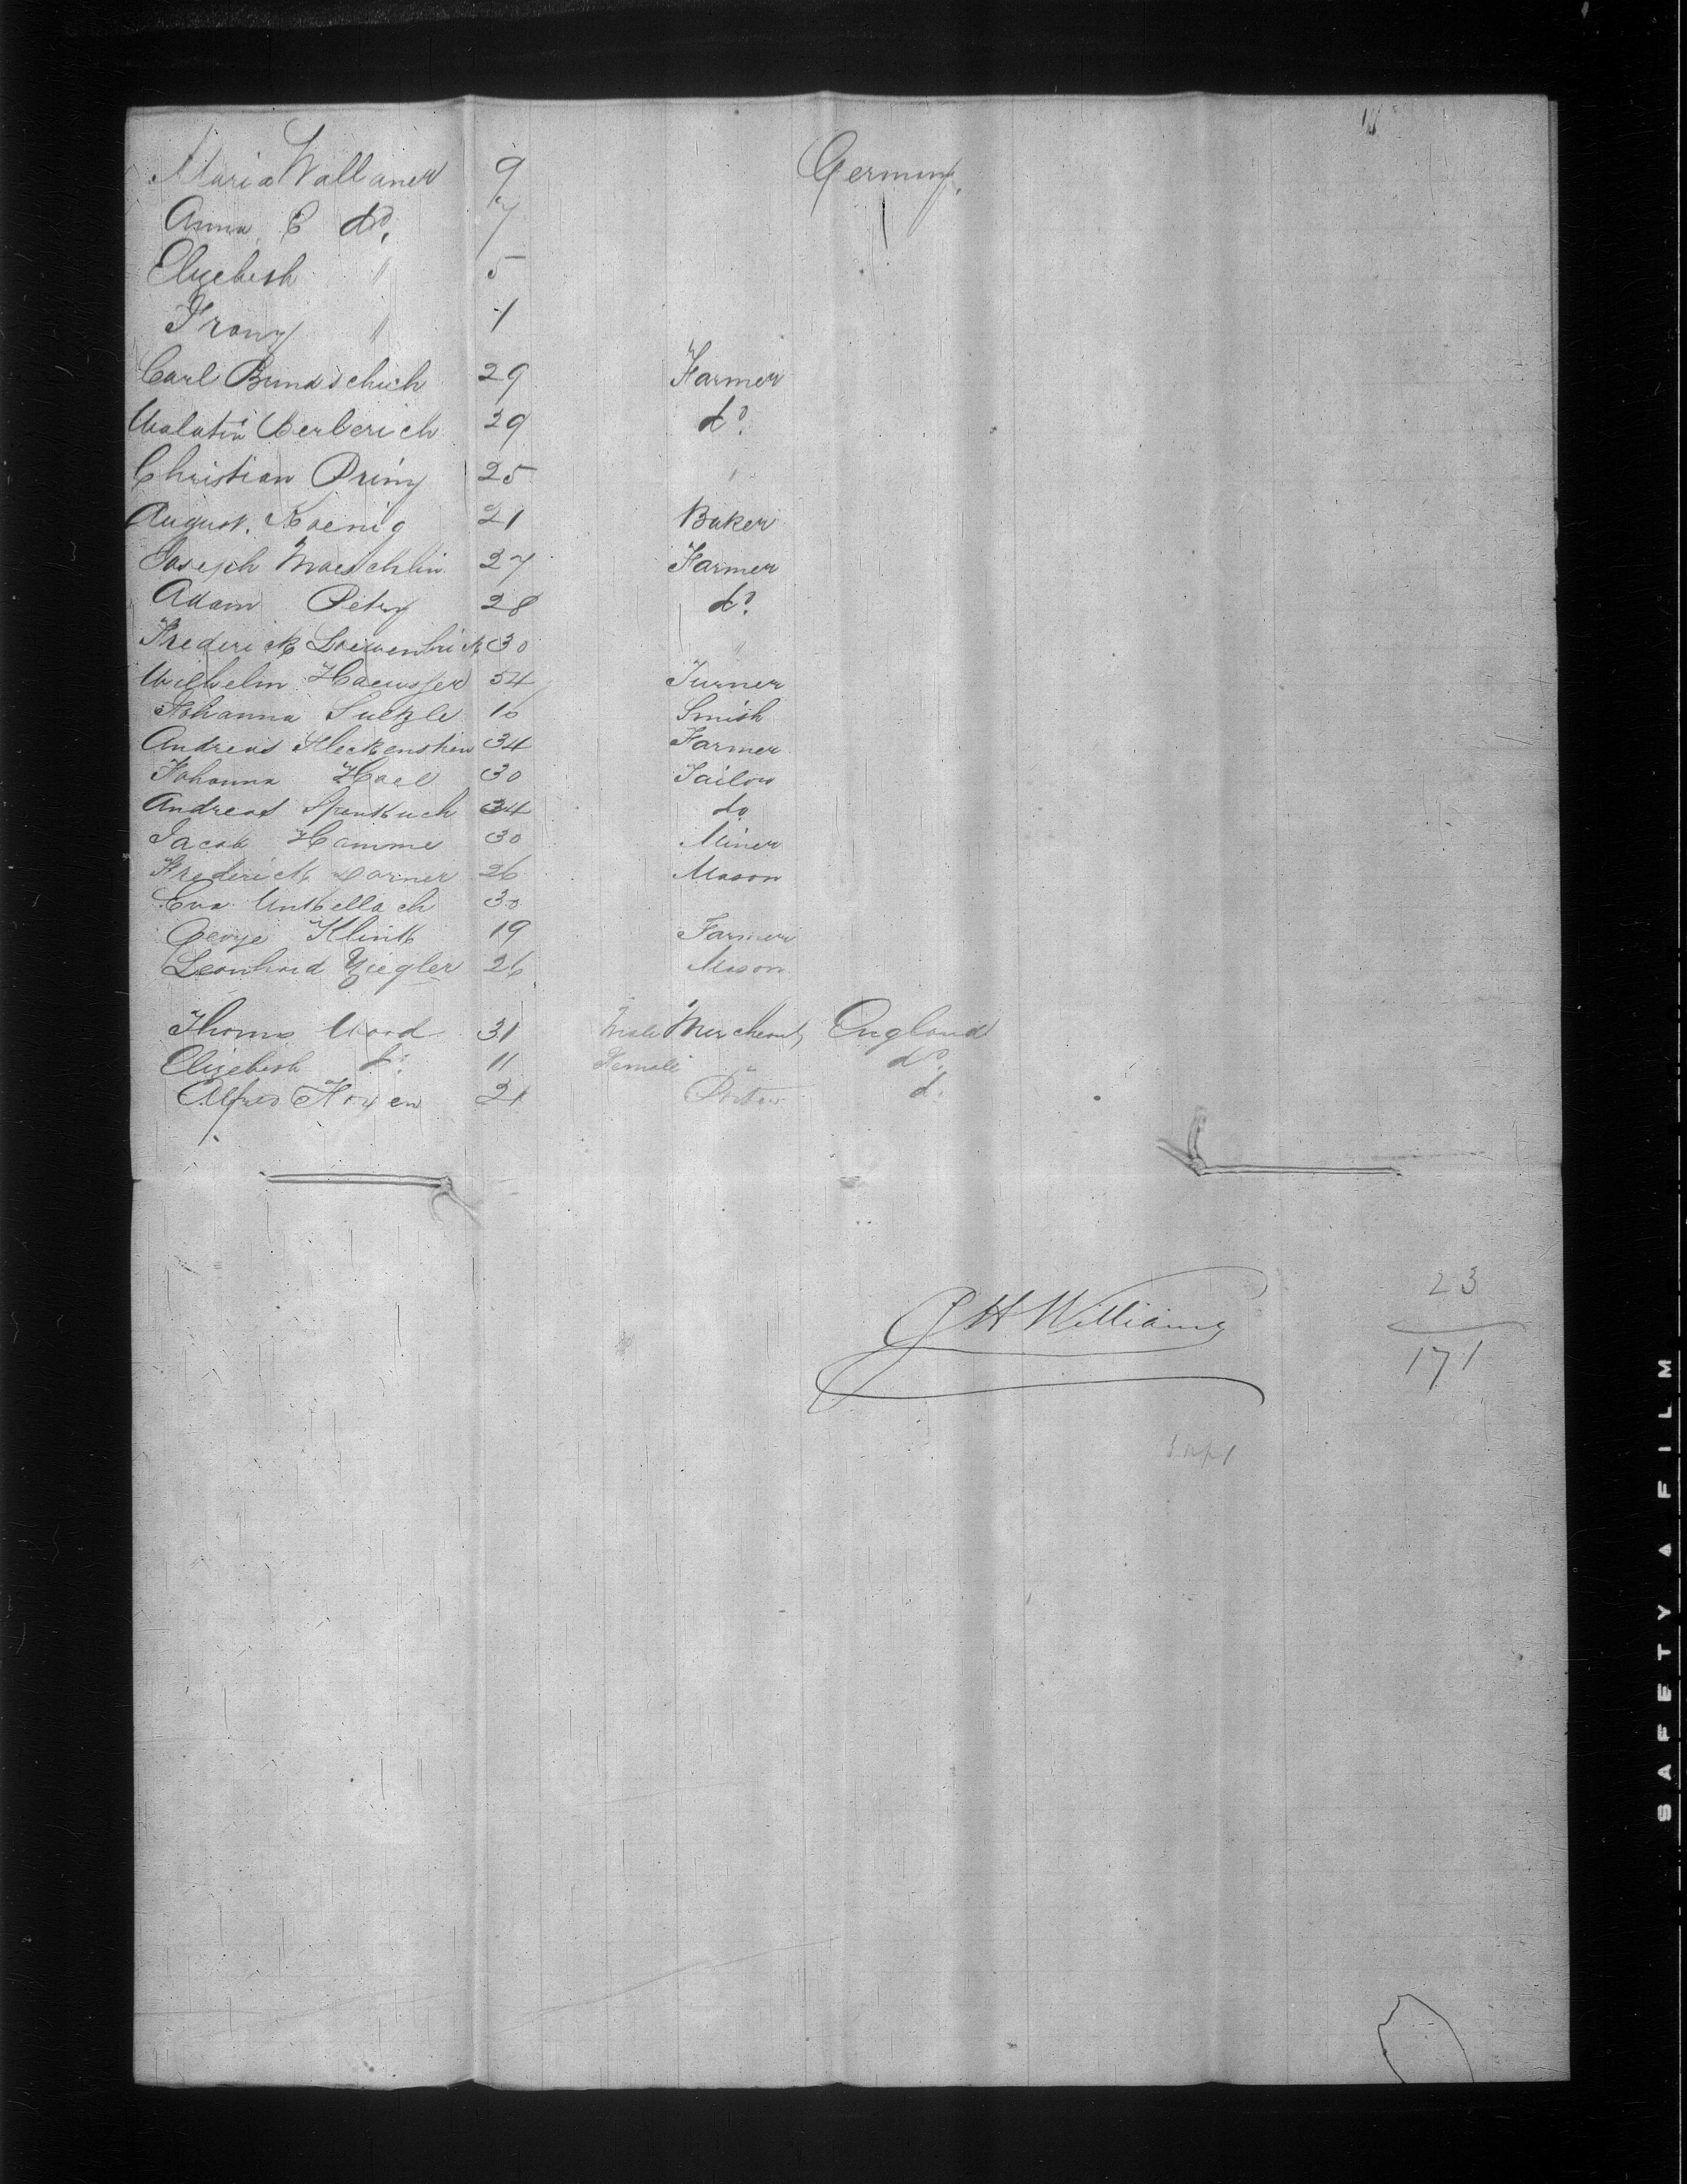 Maria Wallaner 9 Germany,
Anna E do, 7
Elizebeth " 5
Franz " 1
Carl Bundschuch 29 Farmer
Valatin Berberich 29 do.
Christian Prinz 25 "
August. Koenig 21 Baker
Joseph Maeschlin 27 Farmer
Adam Petry 28 do.
Frederick 30 "
Wilhelm Haeusser 54 Turner
Johanna 16 Smith
Andreas Fleckenstien 34 Farmer
Johanna 30 Tailor
Andreas 34 do
Jacob Hamme 30 Miner
Frederick 26 Mason
Eva 30
George Klink 19 Farmer
Leonhard Ziegler 26 Mason
Thoms Wood 31 Male Merchant England
Elizebeth do. 11 Female " do.
Alfred 21 Porter d.
23
H Williams
171
SAFETY FILM